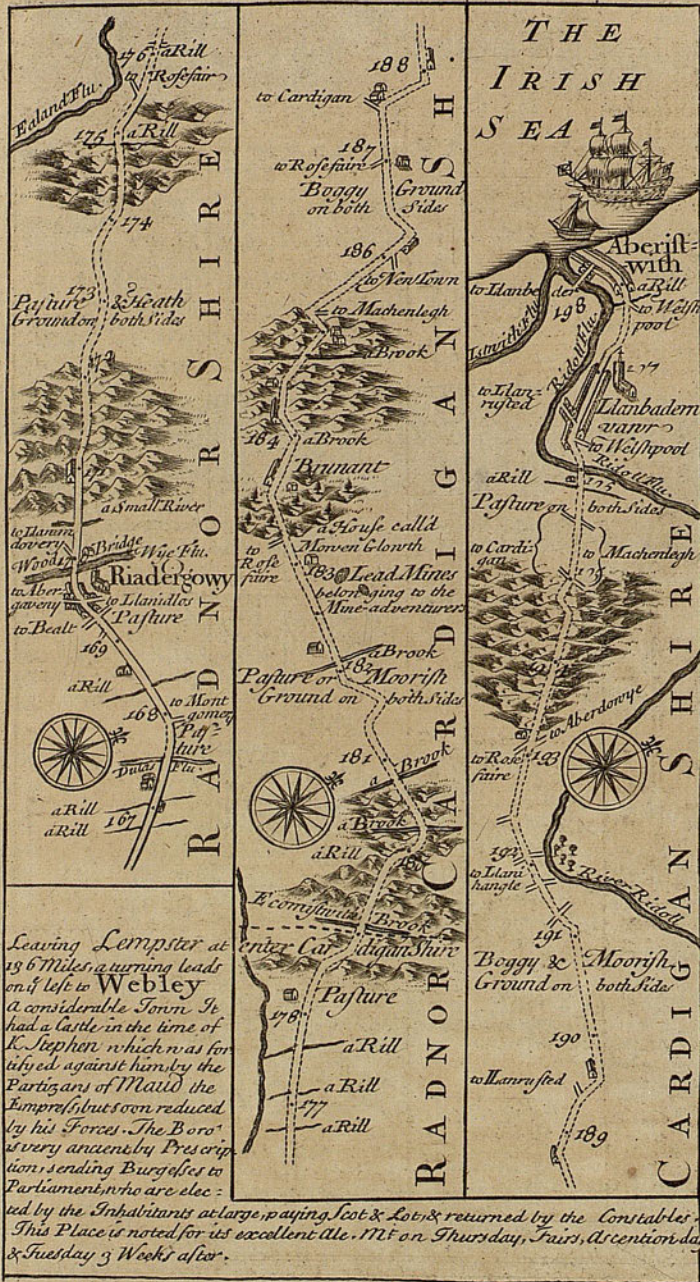 176 a Rill
to Rosefair
Ealand Flu.
175 a Rill
174
173
Pasture & Heath
Ground on both Sides
172
171
a Small River
to Llanım
dovery
Wood Bridge
Wye Flu.
Riadergowy
to Aber
gaveny
to Llanidlos
Pasture
to Bealt
169
a Rill
to Mont
gomery
168
Pas
ture
Dulas Flu.
a Rill
167
a Rill
RADNOR SHIRE
Leaving Lempster at
136 Miles, a turning leads
on yͤ left to Webley
a considerable Town It
had a Castle in the time of
K. Stephen which was for
tifyed against him, by the
Partizans of Maud the
Empress, but soon reduced
by his Forces. The Boro'
is very ancient by Prescrip
tion, sending Burgesses to
Parliament, who are elec=
ted by the Inhabitants at large, paying Scot & Lot, & returned by the Constables.
This Place is noted for its excellent Ale. Mt on Thursday, Fairs, Ascention da
& Tuesday 3 Weeks after.
188
to Cardigan
187
to Rosefaire
Boggy Ground
on both Sides
186
to New Town
to Machenlegh
a Brook
184
a Brook
Brunant
a House call'd
Morven Glowth
to
Rose
faire
183
Lead Mines
belonging to the
Mine-adventurers
a Brook
182
Pasture or Moorish
Ground on both Sides
181
a Brook
a Brook
a Rill
180
Brook
enter Cardigan Shire
Pasture
178
a Rill
a Rill
177
a Rill
RADNOR
CARDIGAN SH.
THE
IRISH
SEA
Aberist=
with
to Llanbe
der
a Rill
to Welsh
pool
198
Istwith Flu.
Ridoll Flu.
197
to Llan=
rusted
Llanbadern
vawr
to Welshpool
Ridoll Flu.
a Rill
195
Pasture on both Sides
to Cardi
gan
to Machenlegh
to Aberdowye
to Rose
faire
193
192
to Llani
hangle
River Ridoll
191
Boggy & Moorish
Ground on both Sides
190
to Llanrusted
189
CARDIGAN SHIRE